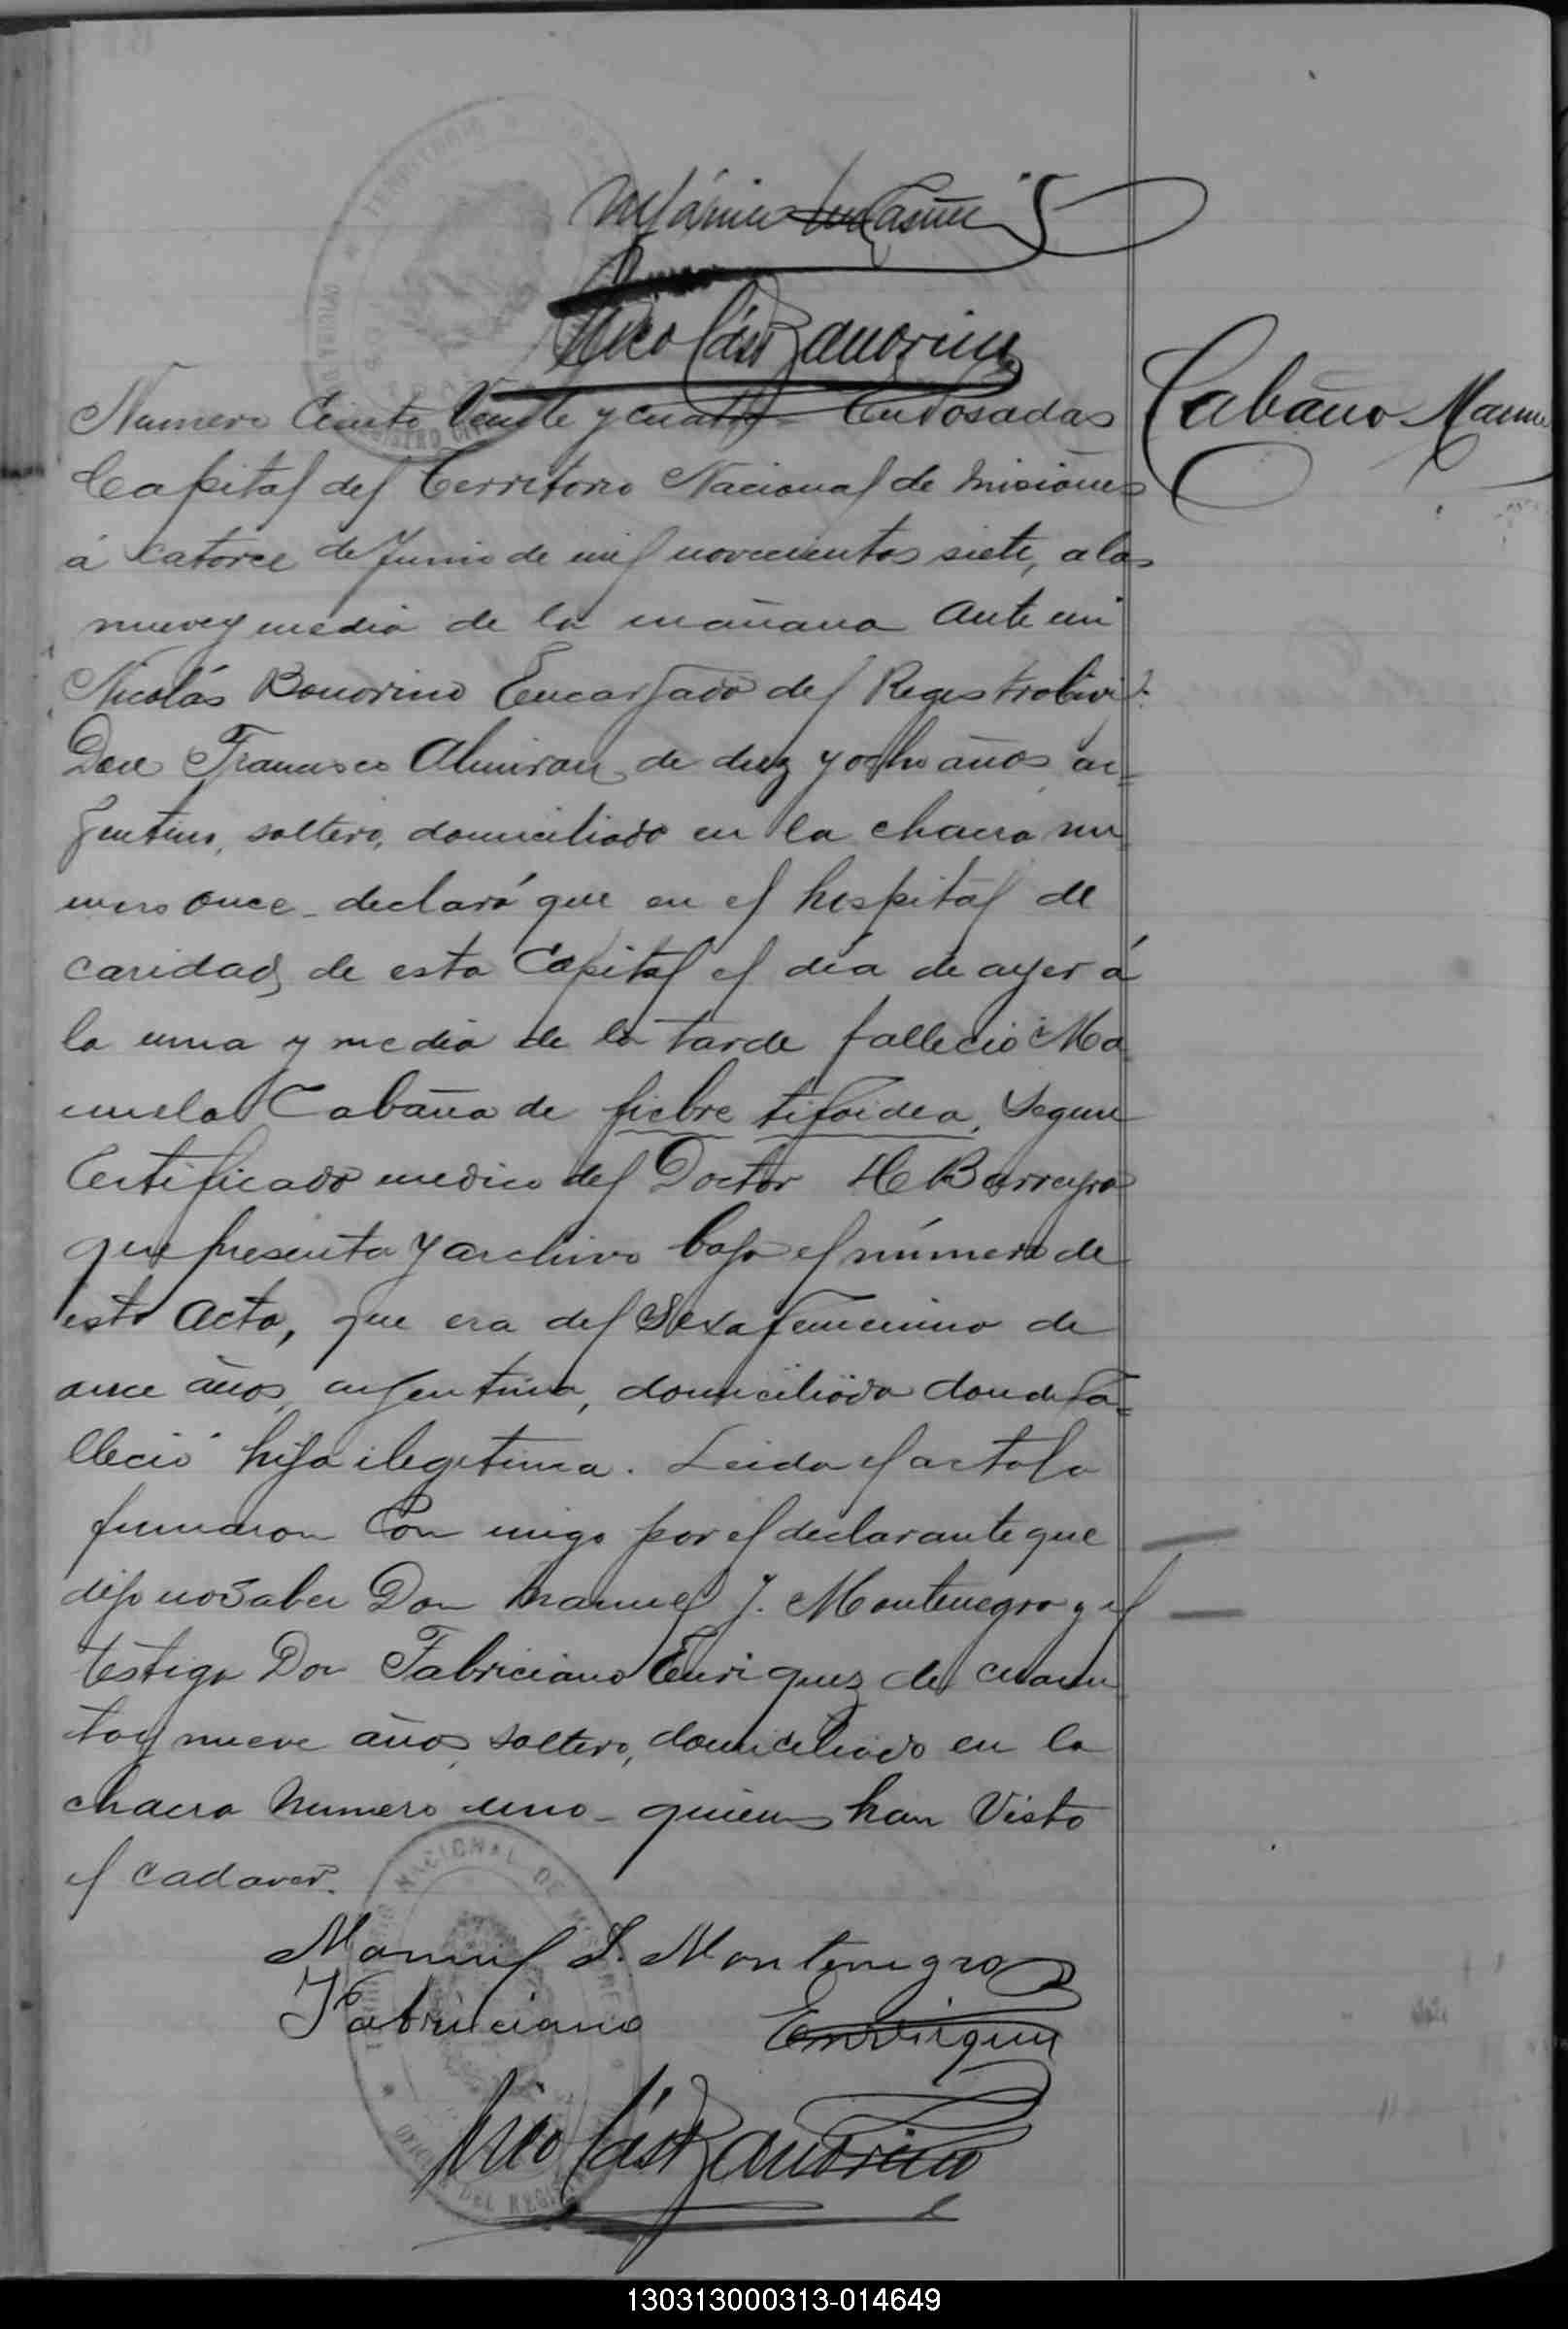 Nicolás Bonorino
Numero Ciento Veinte y cuatro En Posadas
Cabaña Manue
Capital del Territorio Nacional de Misiones
á catorce de Junio de mil novecientos siete, a las
nueve y media de la mañana ante mi
Nicolás Bonorino Encargado del Registro Civil
Don Francisco Almiron de diez y ocho años, ar=
gentino, soltero, domiciliado en la chacra nu
mero once declaró que en el hospital de
caridad de esta Capital el día de ayer á
la una y media de la tarde falleció Ma
nuela Cabaña de fiebre tifoidea, Segun
Certificado medico del Doctor H Barreyro
que presenta y archivo bajo el número de
esta acta, que era del Sexo femenino de
once años, argentina, domiciliada donde fa=
lleció hija ilegitima. Leida el acta la
firmaron Con migo por el declarante que
dijo no Saber Don Manuel J. Montenegro y el
testigo Don Fabriciano Enriquez de cuaren
ta y nueve años, soltero, domiciliado en la
chacra Numero uno quienes han Visto
el cadaver.
Manuel J. Montenegro
Fabriciano Enrriquez
Nicolás Bonorino
130313000313-014649